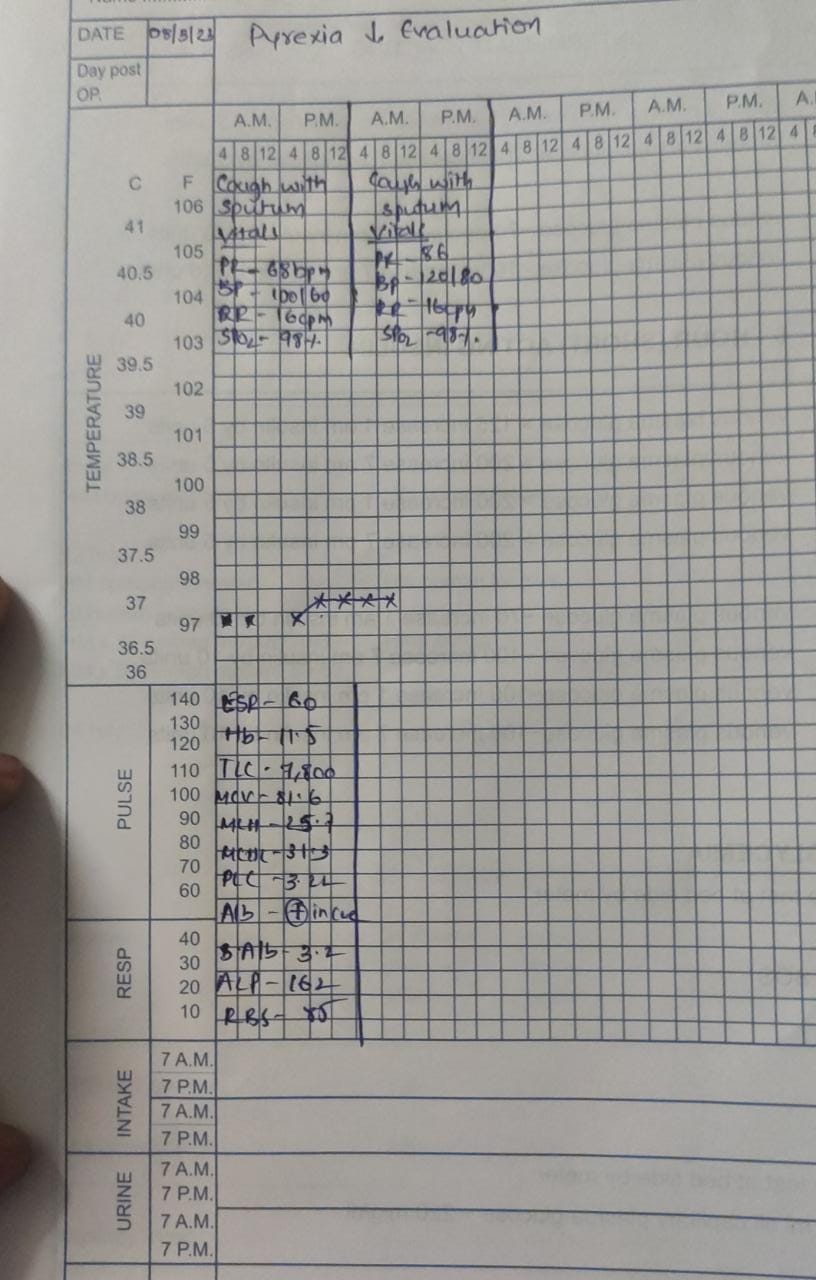 DATE 08/5/23 Pyrexia ↓ Evaluation
Day post
OP.
A.M. P.M. A.M. P.M. A.M. P.M. A.M. P.M. A.
4 8 12 4 8 12 4 8 12 4 8 12 4 8 12 4 8 12 4 8 12 4 8 12 4
C F Cough with Cough with
106 sputum sputum
41 Vitals Vitals
105 PR - 68bpm PR - 86
40.5 BP - 100/60 BP - 120/80
104 RR - 16cpm RR - 16cpm
40 SPO2 - 98% SPO2 - 98%.
103
39.5
102
39
101
38.5
100
38
99
37.5
98
37
97
36.5
36
TEMPERATURE
140 ESR - 60
130 Hb - 11.5
120
110 TLC - 7,800
100 MCV - 81.6
90 MCH - 25.7
80 MCHC - 31.3
70 PLC - 3.22
60
A/b - + in
PULSE
40 S Alb - 3.2
30
20 ALP - 162
10 RBS - 85
RESP
INTAKE
7 A.M.
7 P.M.
7 A.M.
7 P.M.
URINE
7 A.M.
7 P.M.
7 A.M.
7 P.M.